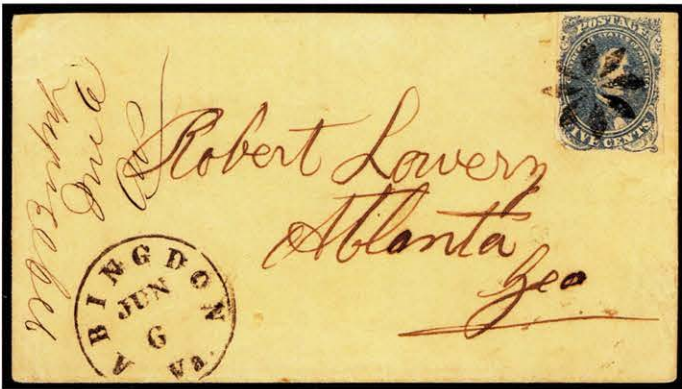 POSTAGE
FIVE CENTS
Robert Lowery
Atlanta
Geo
ABINGDON
JUN
6
Va.